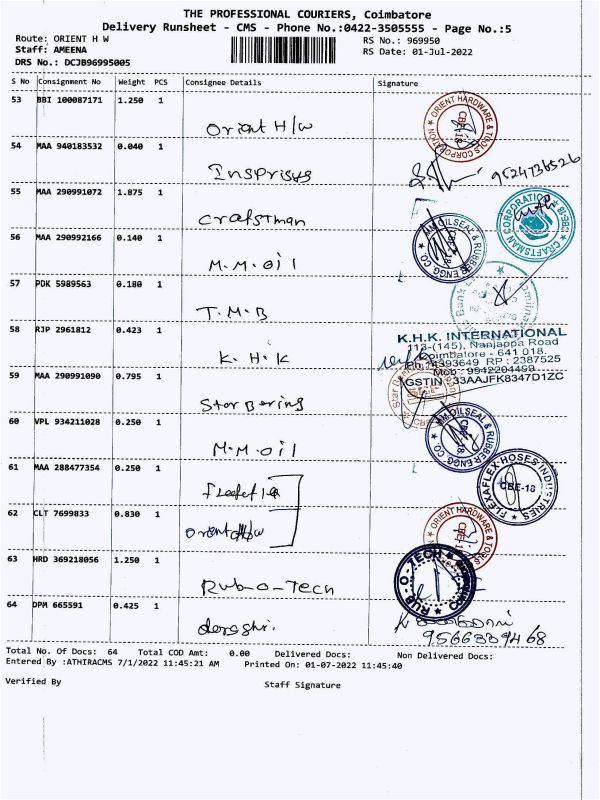 THE PROFESSIONAL COURIERS, Coimbatore
Delivery Runsheet - CMS - Phone No.:0422-3505555 - Page No.:5
Route: ORIENT H W
RS No.: 969950
Staff: AMEENA
RS Date: 01-Jul-2022
DRS No.: DCJB96995005
S No Consignment No Weight PCS Consignee Details Signature
53 BBI 100087171 1.250 1
Orient H/w
ORIENT HARDWARE & TOOLS CORPORATION CBE-18
54 MAA 940183532 0.040 1
Insprisys
9524736526
55 MAA 290991072 1.875 1
Craftsman
CRAFTSMAN CORPORATION CBE-18
56 MAA 290992166 0.140 1
M.M.oil
MM OILSEAL & RUBBER ENGG CO CBE-18
57 PDK 5989563 0.180 1
T.M.B
Bank
58 RJP 2961812 0.423 1
K.H.K
K.H.K. INTERNATIONAL
113-(145), Nanjappa Road
Coimbatore - 641 018.
Ph : 4393649 RP : 2387525
Mob : 9942204499
GSTIN : 33AAJFK8347D1ZC
59 MAA 290991090 0.795 1
Star Bering
60 VPL 934211028 0.250 1
M.M.oil
MM OILSEAL & RUBBER ENGG CO CBE-18
61 MAA 288477354 0.250 1
FLEXAFLEX-HOSES INDUSTRIES CBE-18
62 CLT 7699833 0.830 1
Orient H/w
ORIENT HARDWARE & TOOLS CBE-18
63 HRD 369218056 1.250 1
Rub-o-Tech
RUB-O-TECH
64 DPM 665591 0.425 1
9566339468
Total No. Of Docs: 64 Total COD Amt: 0.00 Delivered Docs: Non Delivered Docs:
Entered By :ATHIRACMS 7/1/2022 11:45:21 AM Printed On: 01-07-2022 11:45:40
Verified By Staff Signature